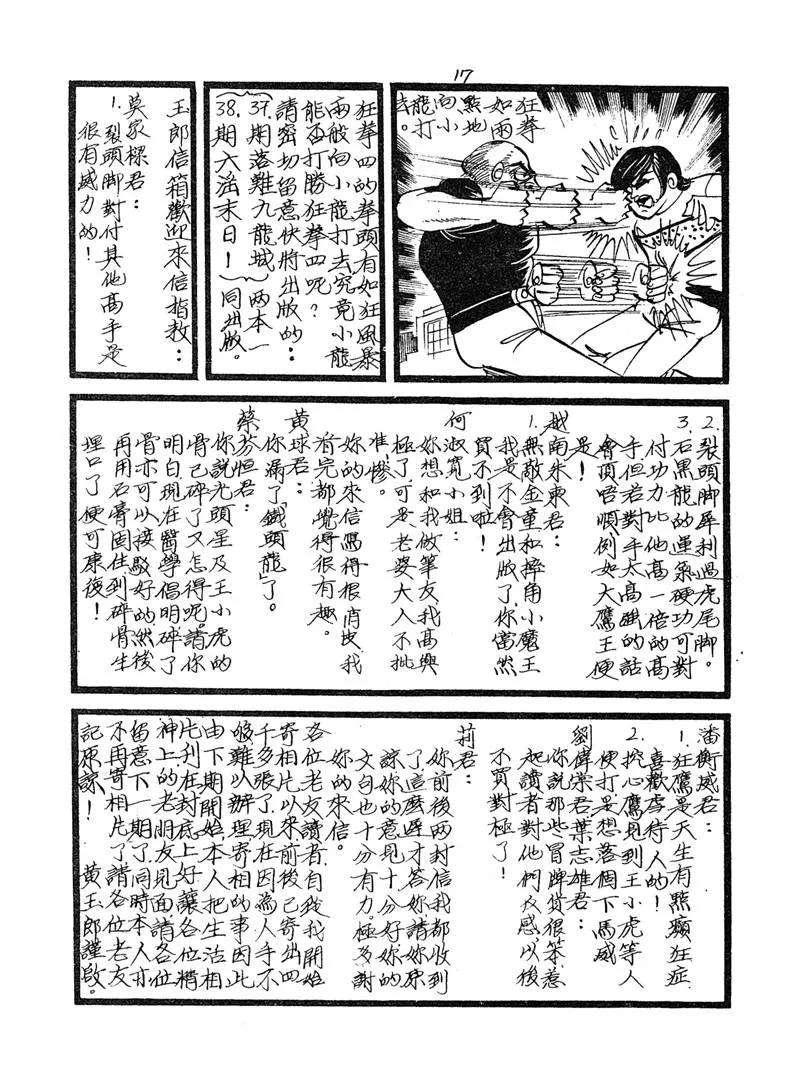 17
狂拳
如雨
點地
向小
龍打
去。
狂拳四的拳頭有如狂風暴
雨般向小龍打去究竟小龍
能否打勝狂拳四呢？
請密切留意快將出版的：
37.期落難九龍城 兩本一
38.期六滔末日！ 同出版。
玉郎信箱歡迎來信指教：
莫家樑君：
1.裂頭脚對付其他高手是
很有威力的！
2.裂頭脚犀利過虎尾脚。
3.石黑龍的運氣硬功可對
付功力比他高一倍的高
手但若對手太高強的話
會頂唔順例如大鷹王便
是！
越南朱東君：
1.無敵金童和摔角小魔王
我是不會出版了，你當然
買不到啦！
何淑寬小姐：
妳想和我做筆友我高興
極了可是老婆大人不批
准，慘。
妳的來信寫得很俏皮我
看完都覺得很有趣。
黄球君：
你漏了「鐵頭龍」了。
蔡芬恒君：
你說光頭星及王小虎的
骨已碎了又怎得呢。請你
明白現在醫學倡明碎了
骨亦可以接駁好的然後
再用石膏固住到碎骨生
埋口了便可康復！
潘衡威君：
1.狂鷹是天生有點癲狂症
喜歡虐待人的！
2.挖心鷹見到王小虎等人
便打是想落個下馬威
劉偉棠君葉志雄君：
你說那些冒牌貨很笨惹
起讀者對他們反感以後
不買對極了！
莉君：
妳前後兩封信我都收到
了這麼遲才答妳請妳原
諒妳的意見十分好妳的
文句也十分有力。極多謝
妳的來信。
各位老友讀者自我開始
寄相片以來前後已寄出四
千多張了。現在因為人手不
够難以辦理寄相的事因此
由下期開始本人把生活相
片刊在封底上好讓各位精
神上的老朋友見面請各位
留意下一期了同時本人亦
不再寄相片了請各位老友
記原諒！ 黄玉郎謹啟。